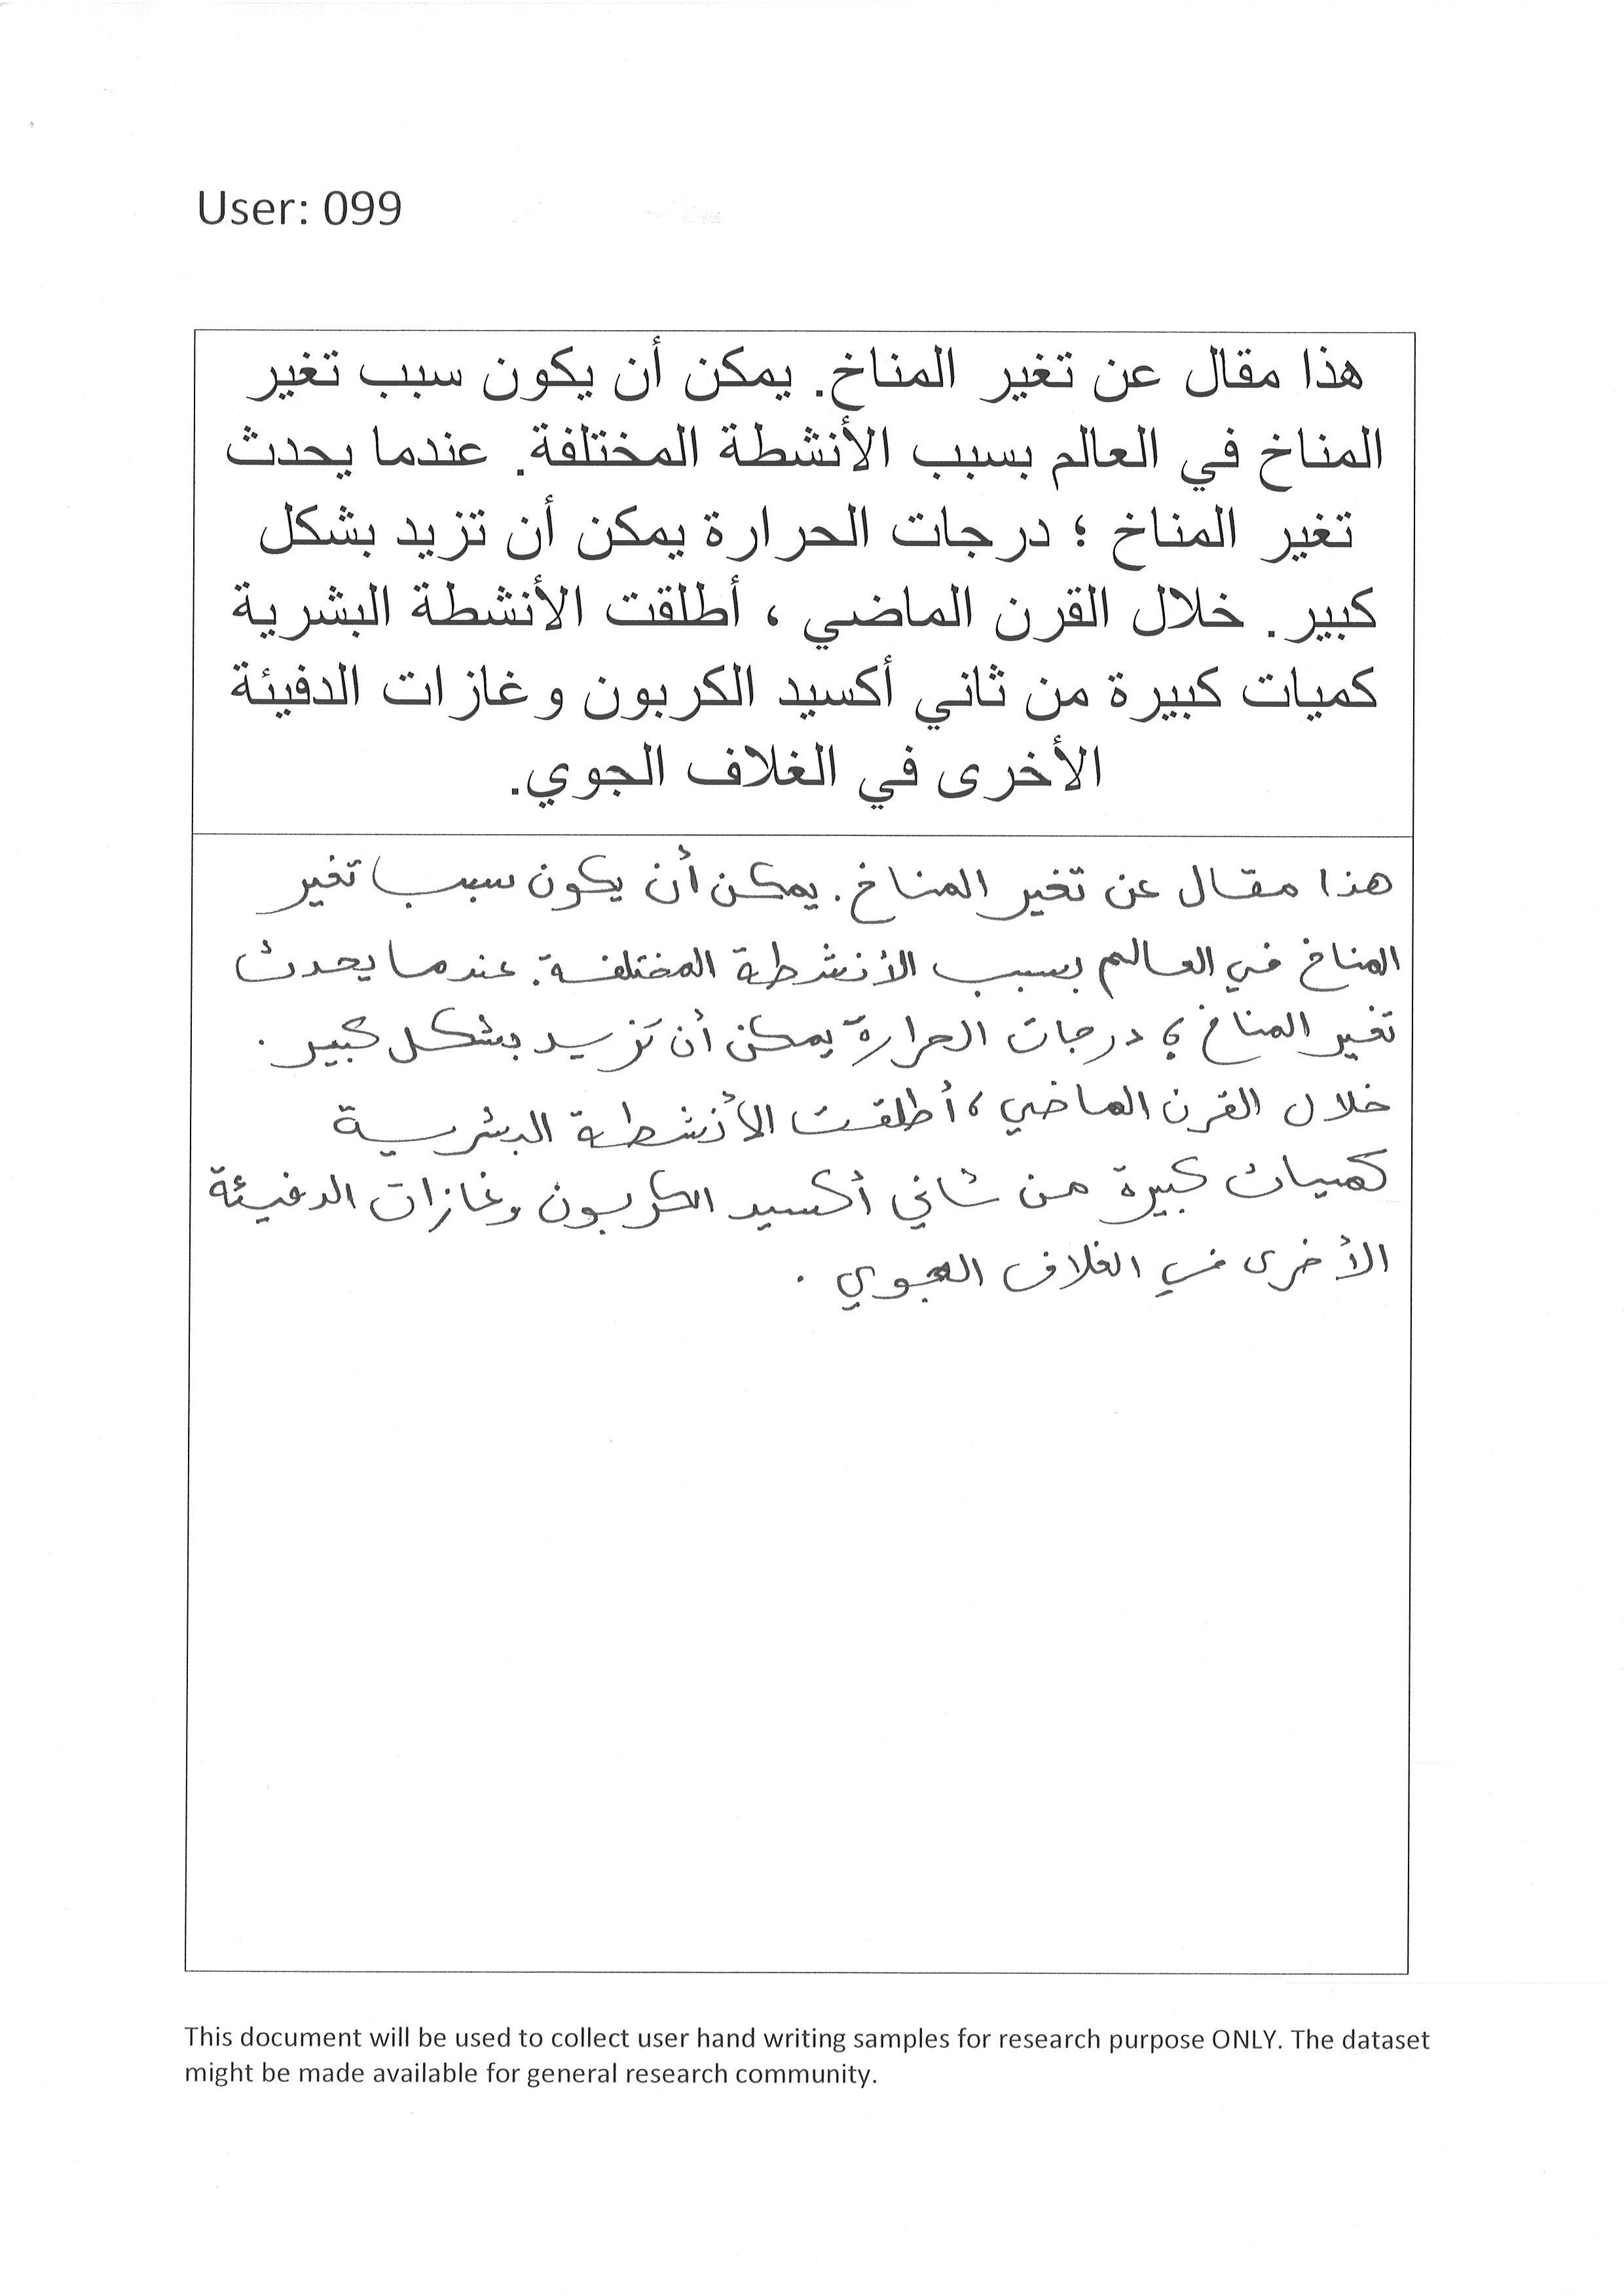 User: 099
هذا مقال عن تغير المناخ. يمكن أن يكون سبب تغير
المناخ في العالم بسبب الأنشطة المختلفة. عندما يحدث
تغير المناخ ؛ درجات الحرارة يمكن أن تزيد بشكل
كبير. خلال القرن الماضي ، أطلقت الأنشطة البشرية
كميات كبيرة من ثاني أكسيد الكربون وغازات الدفيئة
الأخرى في الغلاف الجوي.
هذا مقال عن تغير المناخ. يمكن أن يكون سبب تغير
المناخ في العالم بسبب الأنشطة المختلفة. عندما يحدث
تغير المناخ ؛ درجات الحرارة يمكن أن تزيد بشكل كبير.
خلال القرن الماضي ، أطلقت الأنشطة البشرية
كميات كبيرة من ثاني أكسيد الكربون وغازات الدفيئة
الأخرى في الغلاف الجوي.
This document will be used to collect user hand writing samples for research purpose ONLY. The dataset
might be made available for general research community.